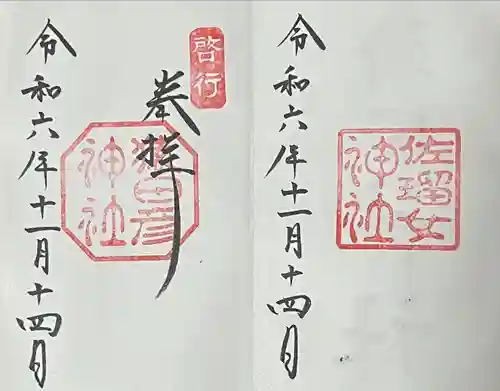 啓行
奉拝
猿田彦
神社
令和六年十一月十四日
令和六年十一月十四日
佐瑠女
神社